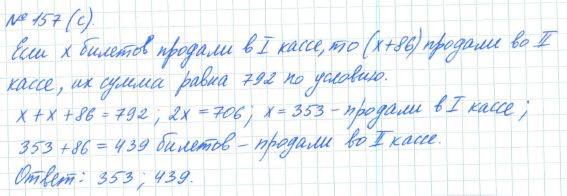 № 157 (с).
Если x билетов продали в I кассе, то (x+86) продали во II
кассе, их сумма равна 792 по условию.
x + x + 86 = 792 ; 2x = 706 ; x = 353 - продали в I кассе ;
353 + 86 = 439 билетов - продали во II кассе.
Ответ: 353 ; 439.